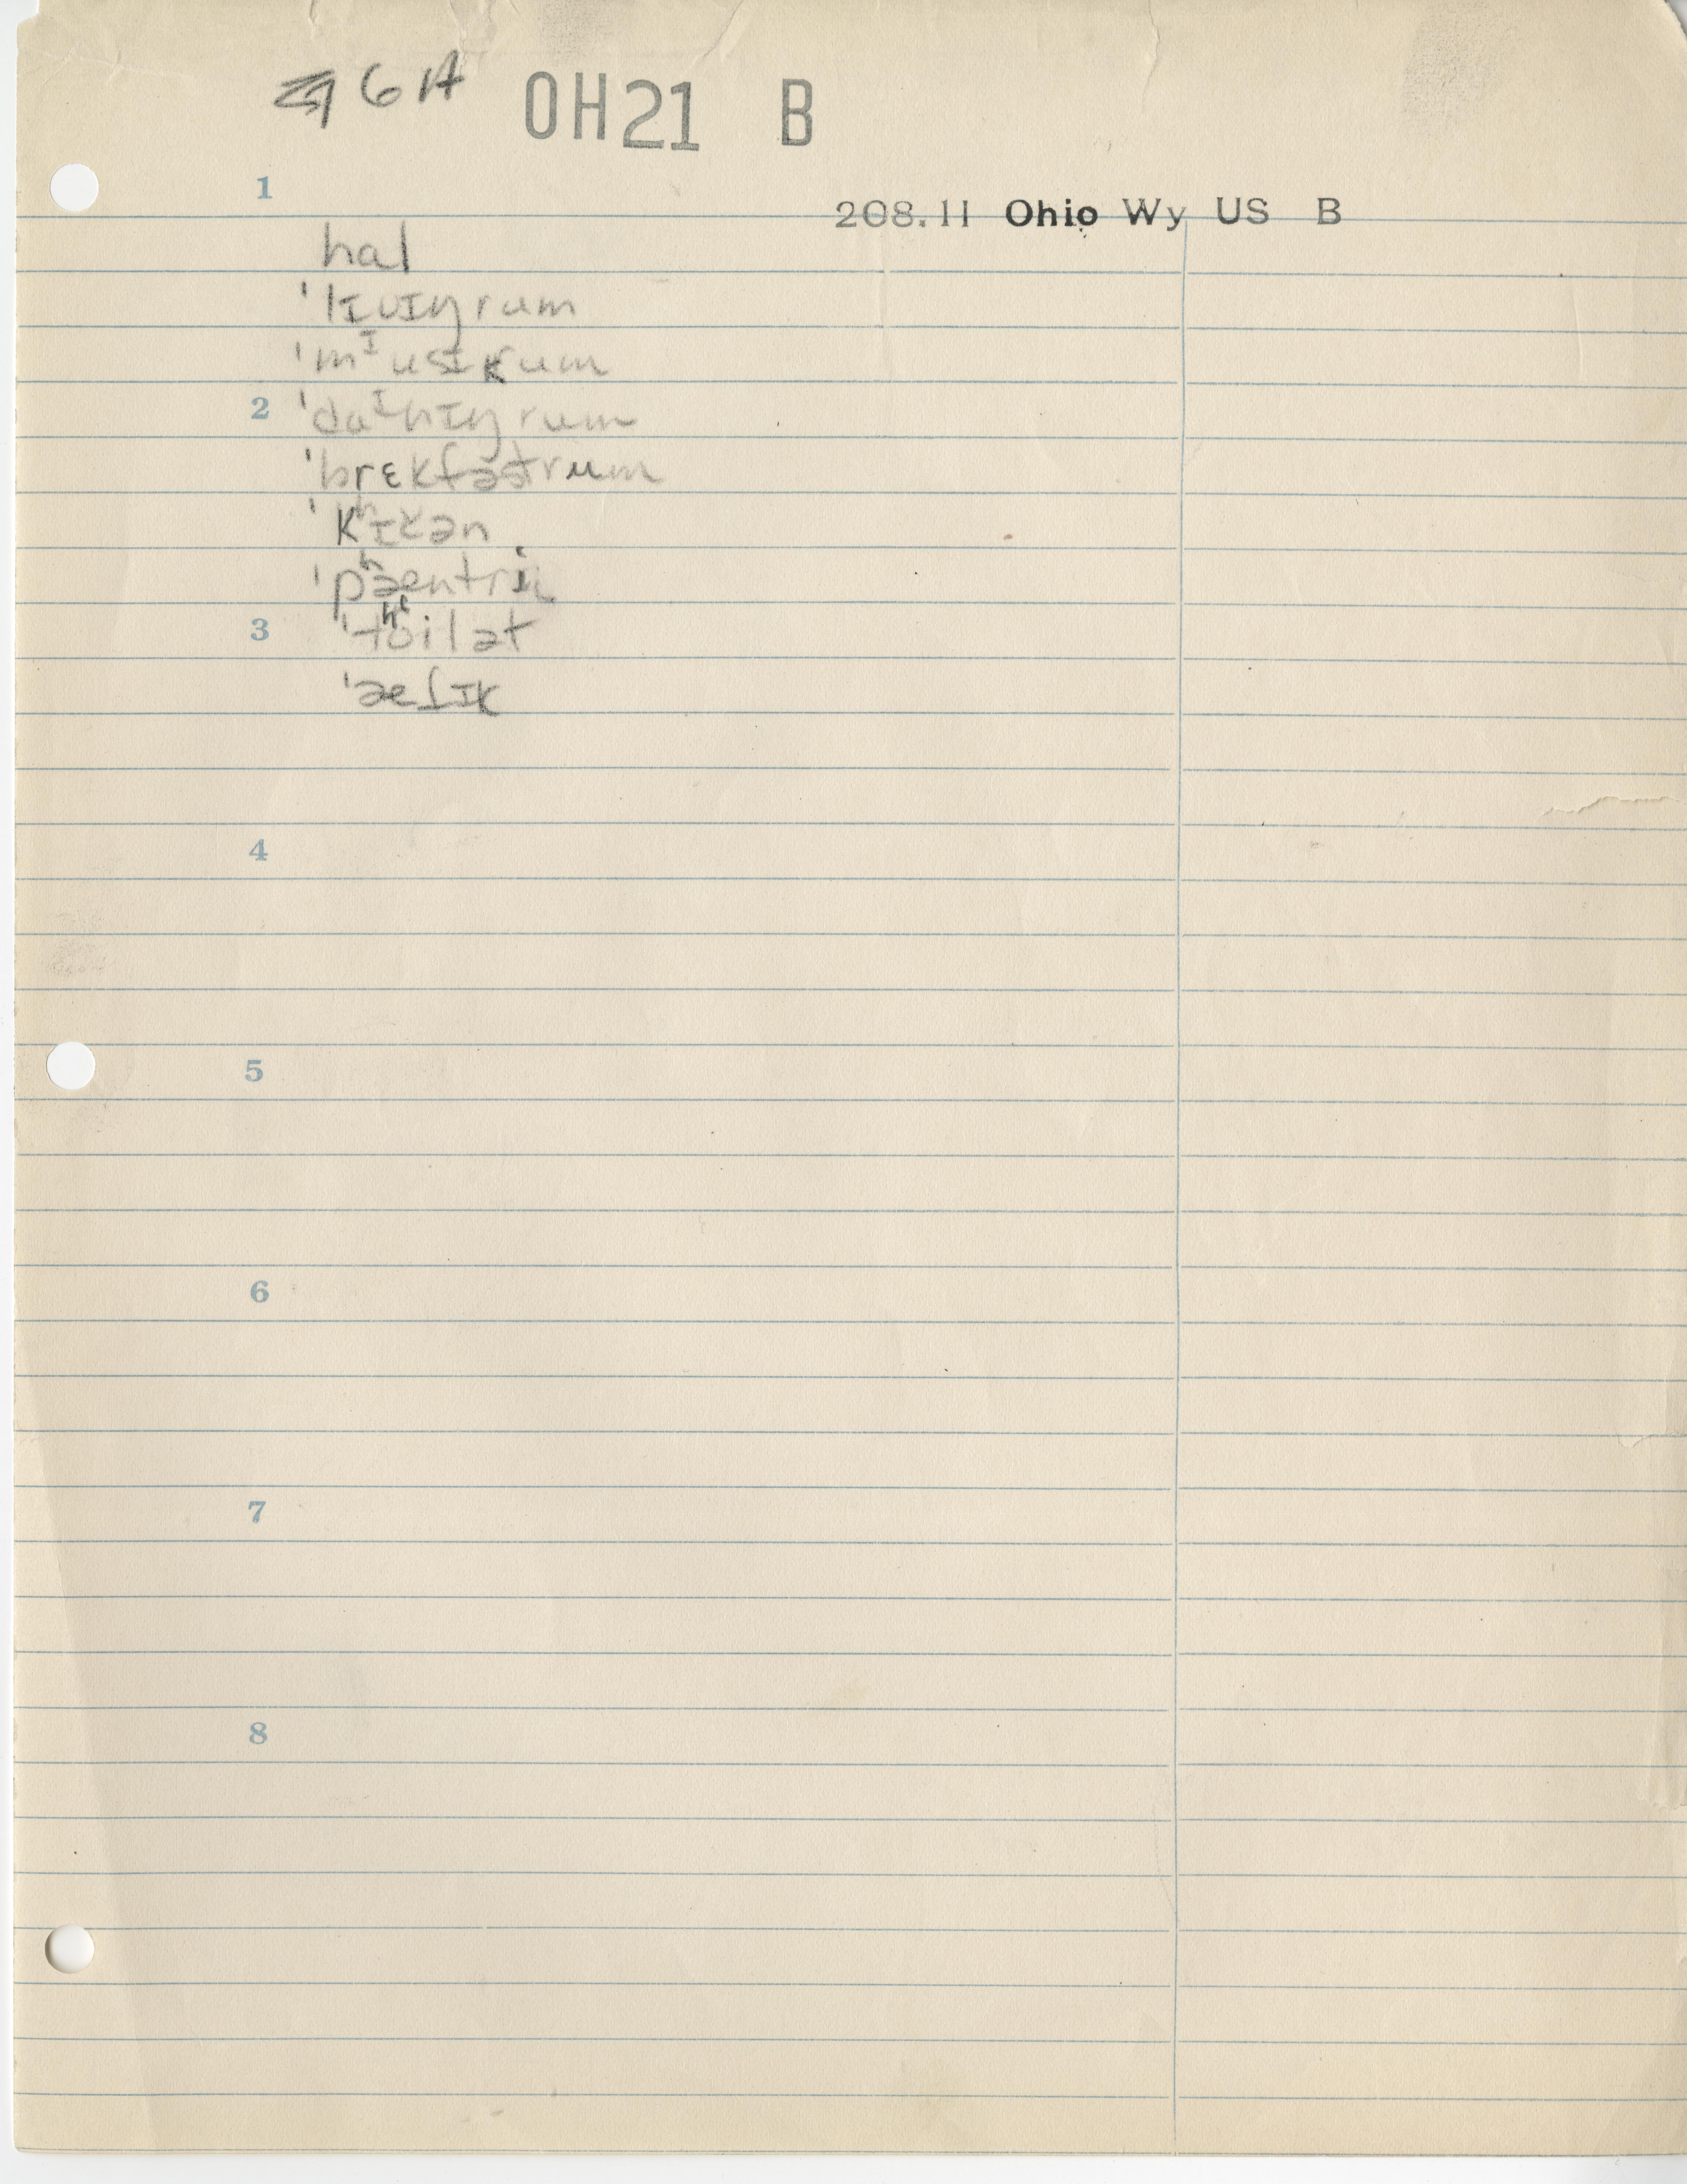 6A OH21 B
1
208.11 Ohio Wy US B
hal
ˈlɪvɪŋrum
ˈmᶦusɪkrum
2 ˈdaᶦnɪŋrum
ˈbrɛkfəstrum
ˈkʰɪtʃən
ˈpʰæntri
3 ˈtʰɔilət
ˈæʃɪk
4
5
6
7
8